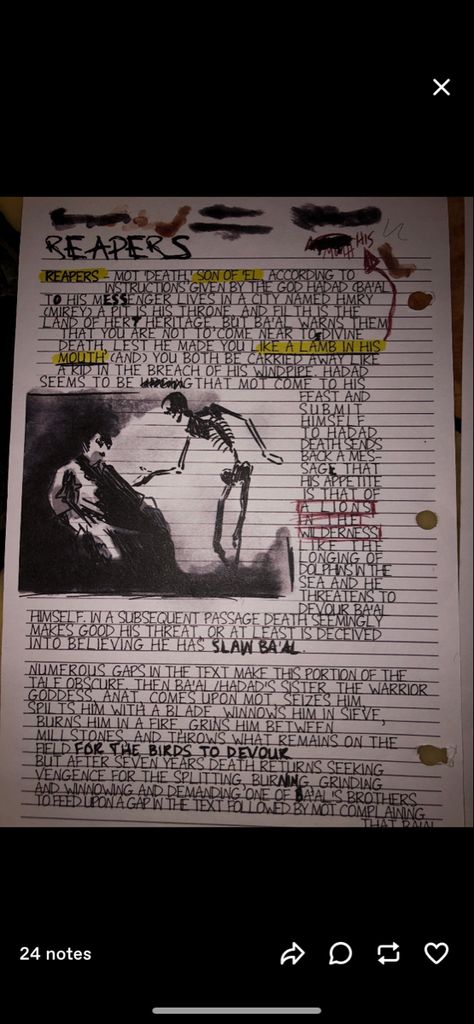 REAPERS
HIS
REAPERS - MOT 'DEATH, SON OF 'EL, ACCORDING TO
INSTRUCTIONS GIVEN BY THE GOD HADAD (BA'AL
TO HIS MESSENGER LIVES IN A CITY NAMED HMRY
(MIREY) A PIT IS HIS THRONE, AND FILTH IS THE
LAND OF HER? HERITAGE. BUT BA'AL WARNS THEM
THAT YOU ARE NOT TO COME NEAR TO DIVINE
DEATH, LEST HE MADE YOU LIKE A LAMB IN HIS
MOUTH (AND) YOU BOTH BE CARRIED AWAY LIKE
A KID IN THE BREACH OF HIS WINDPIPE. HADAD
SEEMS TO BE THAT MOT COME TO HIS
FEAST AND
SUBMIT
HIMSELF
TO HADAD
DEATH SENDS
BACK A MES-
SAGE THAT
HIS APPETITE
IS THAT OF
A LIONS
IN THE
WILDERNESS
LIKE THE
LONGING OF
DOLPHINS IN THE
SEA AND HE
THREATENS TO
DEVOUR BA'AL
HIMSELF. IN A SUBSEQUENT PASSAGE DEATH SEEMINGLY
MAKES GOOD HIS THREAT, OR AT LEAST IS DECEIVED
INTO BELIEVING HE HAS SLAIN BA'AL.
NUMEROUS GAPS IN THE TEXT MAKE THIS PORTION OF THE
TALE OBSCURE. THEN BA'AL/HADAD'S SISTER, THE WARRIOR
GODDESS ANAT, COMES UPON MOT, SEIZES HIM,
SPLITS HIM WITH A BLADE, WINNOWS HIM IN SIEVE,
BURNS HIM IN A FIRE, GRINS HIM BETWEEN
MILLSTONES, AND THROWS WHAT REMAINS ON THE
FIELD FOR THE BIRDS TO DEVOUR
BUT AFTER SEVEN YEARS DEATH RETURNS SEEKING
VENGENCE FOR THE SPLITTING, BURNING, GRINDING
AND WINNOWING AND DEMANDING 'ONE OF BA'AL'S BROTHERS
TO FEED UPON A GAP IN THE TEXT FOLLOWED BY MOT COMPLAINING
THAT BA'AL
24 notes